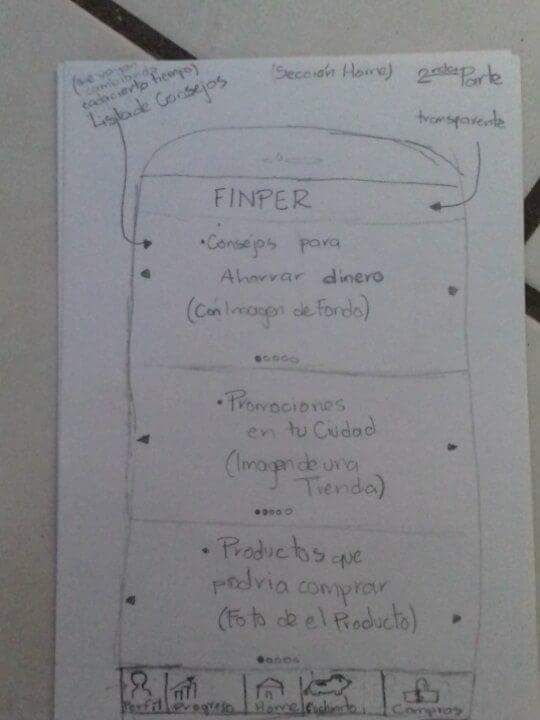 (que vayan
cambiando
cada cierto tiempo)
Lista de Consejos
(Sección Home)
2nda Parte
transparente
FINPER
• Consejos para
Ahorrar dinero
(Con Imagen de Fondo)
• Promociones
en tu Ciudad
(Imagen de una
Tienda)
• Productos que
podria comprar
(Foto de el Producto)
Perfil Progreso Home Cochinito Compras